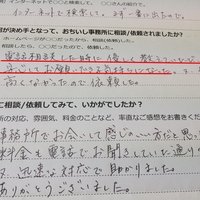 インターネットで検索して、まず一番に出たので。
が決め手となって、おちいし事務所に相談/依頼されましたか?
電話相談した時に優しく教えていただき
安心してお願いできる気持ちになった。
高くなかったので依頼しました。
ご相談/依頼してみて、いかがでしたか?
の対応、雰囲気、料金のことなど、率直なご感想をお書きくだ
事務所でお会いして感じのいい方だと思
料金も電話でお聞きしていた通りの
迅速な対応で助かりました。
ありがとうございました。